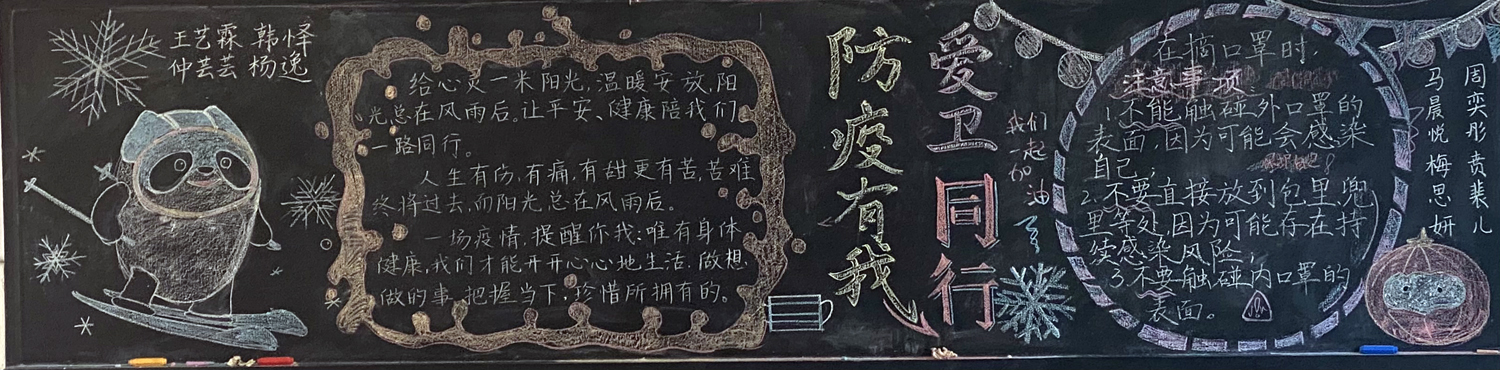 王艺霖 韩怿
仲芸芸 杨逸
给心灵一米阳光,温暖安放,阳
光总在风雨后。让平安、健康陪我们
一路同行。
人生有伤,有痛,有甜更有苦,苦难
终将过去,而阳光总在风雨后。
一场疫情,提醒你我:唯有身体
健康,我们才能开开心心地生活,做想
做的事,把握当下,珍惜所拥有的。
防疫有我
爱卫同行
我们
一起
加
油
在摘口罩时,
注意事项
1.不能触碰外口罩的
表面,因为可能会感染
自己;
2.不要直接放到包里,兜
里等处,因为可能存在持
续感染风险;
3.不要触碰内口罩的
表面。
周奕彤 贲裴儿
马晨悦 梅思妍